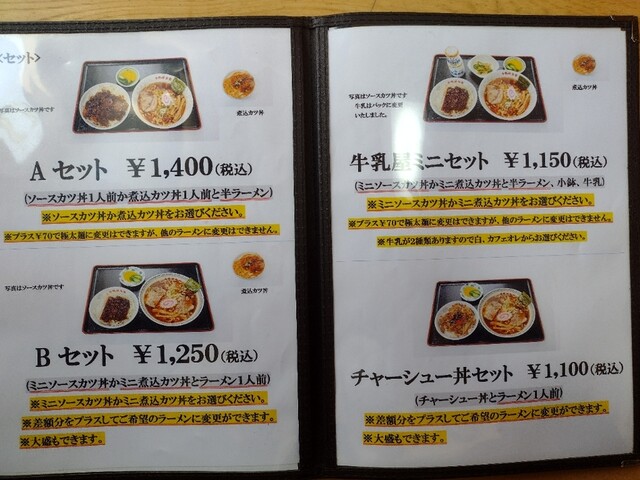 <セット>
写真はソースカツ丼です
煮込カツ丼
Aセット ￥1,400(税込)
(ソースカツ丼1人前か煮込カツ丼1人前と半ラーメン)
※ソースカツ丼か煮込カツ丼をお選びください。
※プラス￥70で極太麺に変更はできますが、他のラーメンに変更はできません。
写真はソースカツ丼です
煮込カツ丼
Bセット ￥1,250(税込)
(ミニソースカツ丼かミニ煮込カツ丼とラーメン1人前)
※ミニソースカツ丼かミニ煮込カツ丼をお選びください。
※差額分をプラスしてご希望のラーメンに変更ができます。
※大盛もできます。
写真はソースカツ丼です
牛乳はパックに変更
いたしました。
煮込カツ丼
牛乳屋ミニセット ￥1,150(税込)
(ミニソースカツ丼かミニ煮込カツ丼と半ラーメン、小鉢、牛乳)
※ミニソースカツ丼かミニ煮込カツ丼をお選びください。
※プラス￥70で極太麺に変更はできますが、他のラーメンに変更はできません。
※牛乳が2種類ありますので白、カフェオレからお選びください。
チャーシュー丼セット ￥1,100(税込)
(チャーシュー丼とラーメン1人前)
※差額分をプラスしてご希望のラーメンに変更ができます。
※大盛もできます。